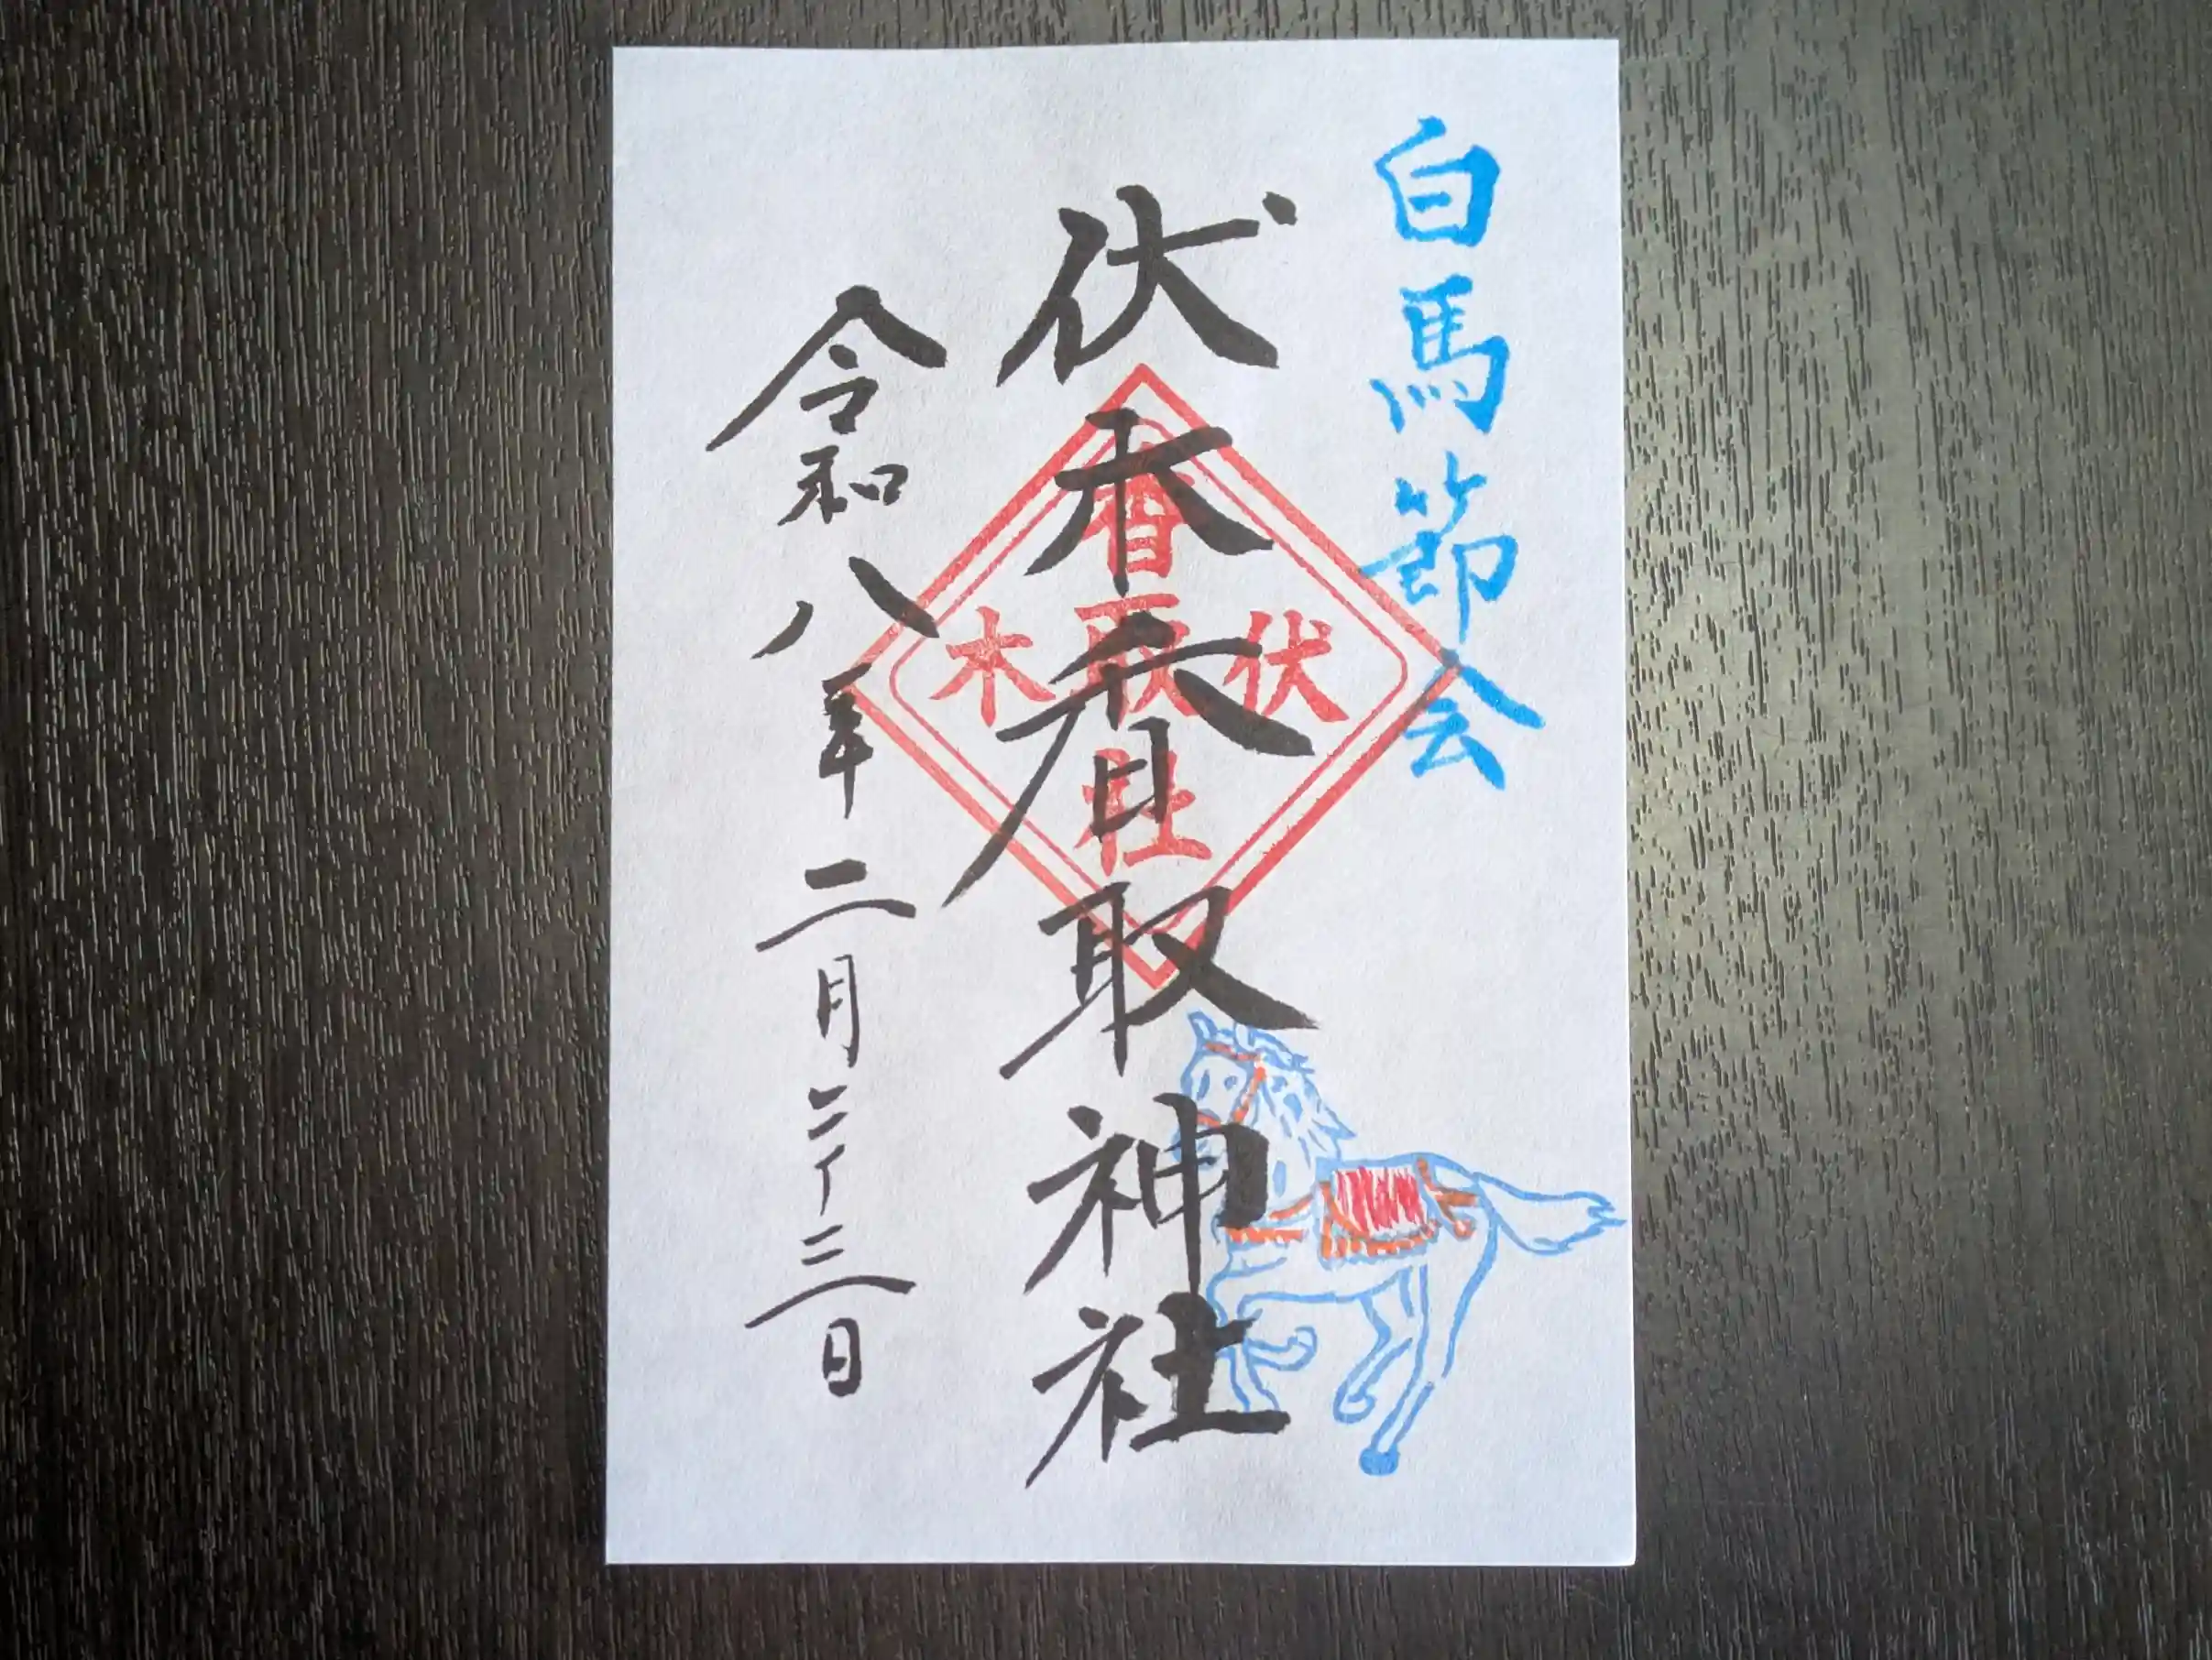 白馬節会
伏木香取神社
香
伏取木
社
令和八年二月二十三日